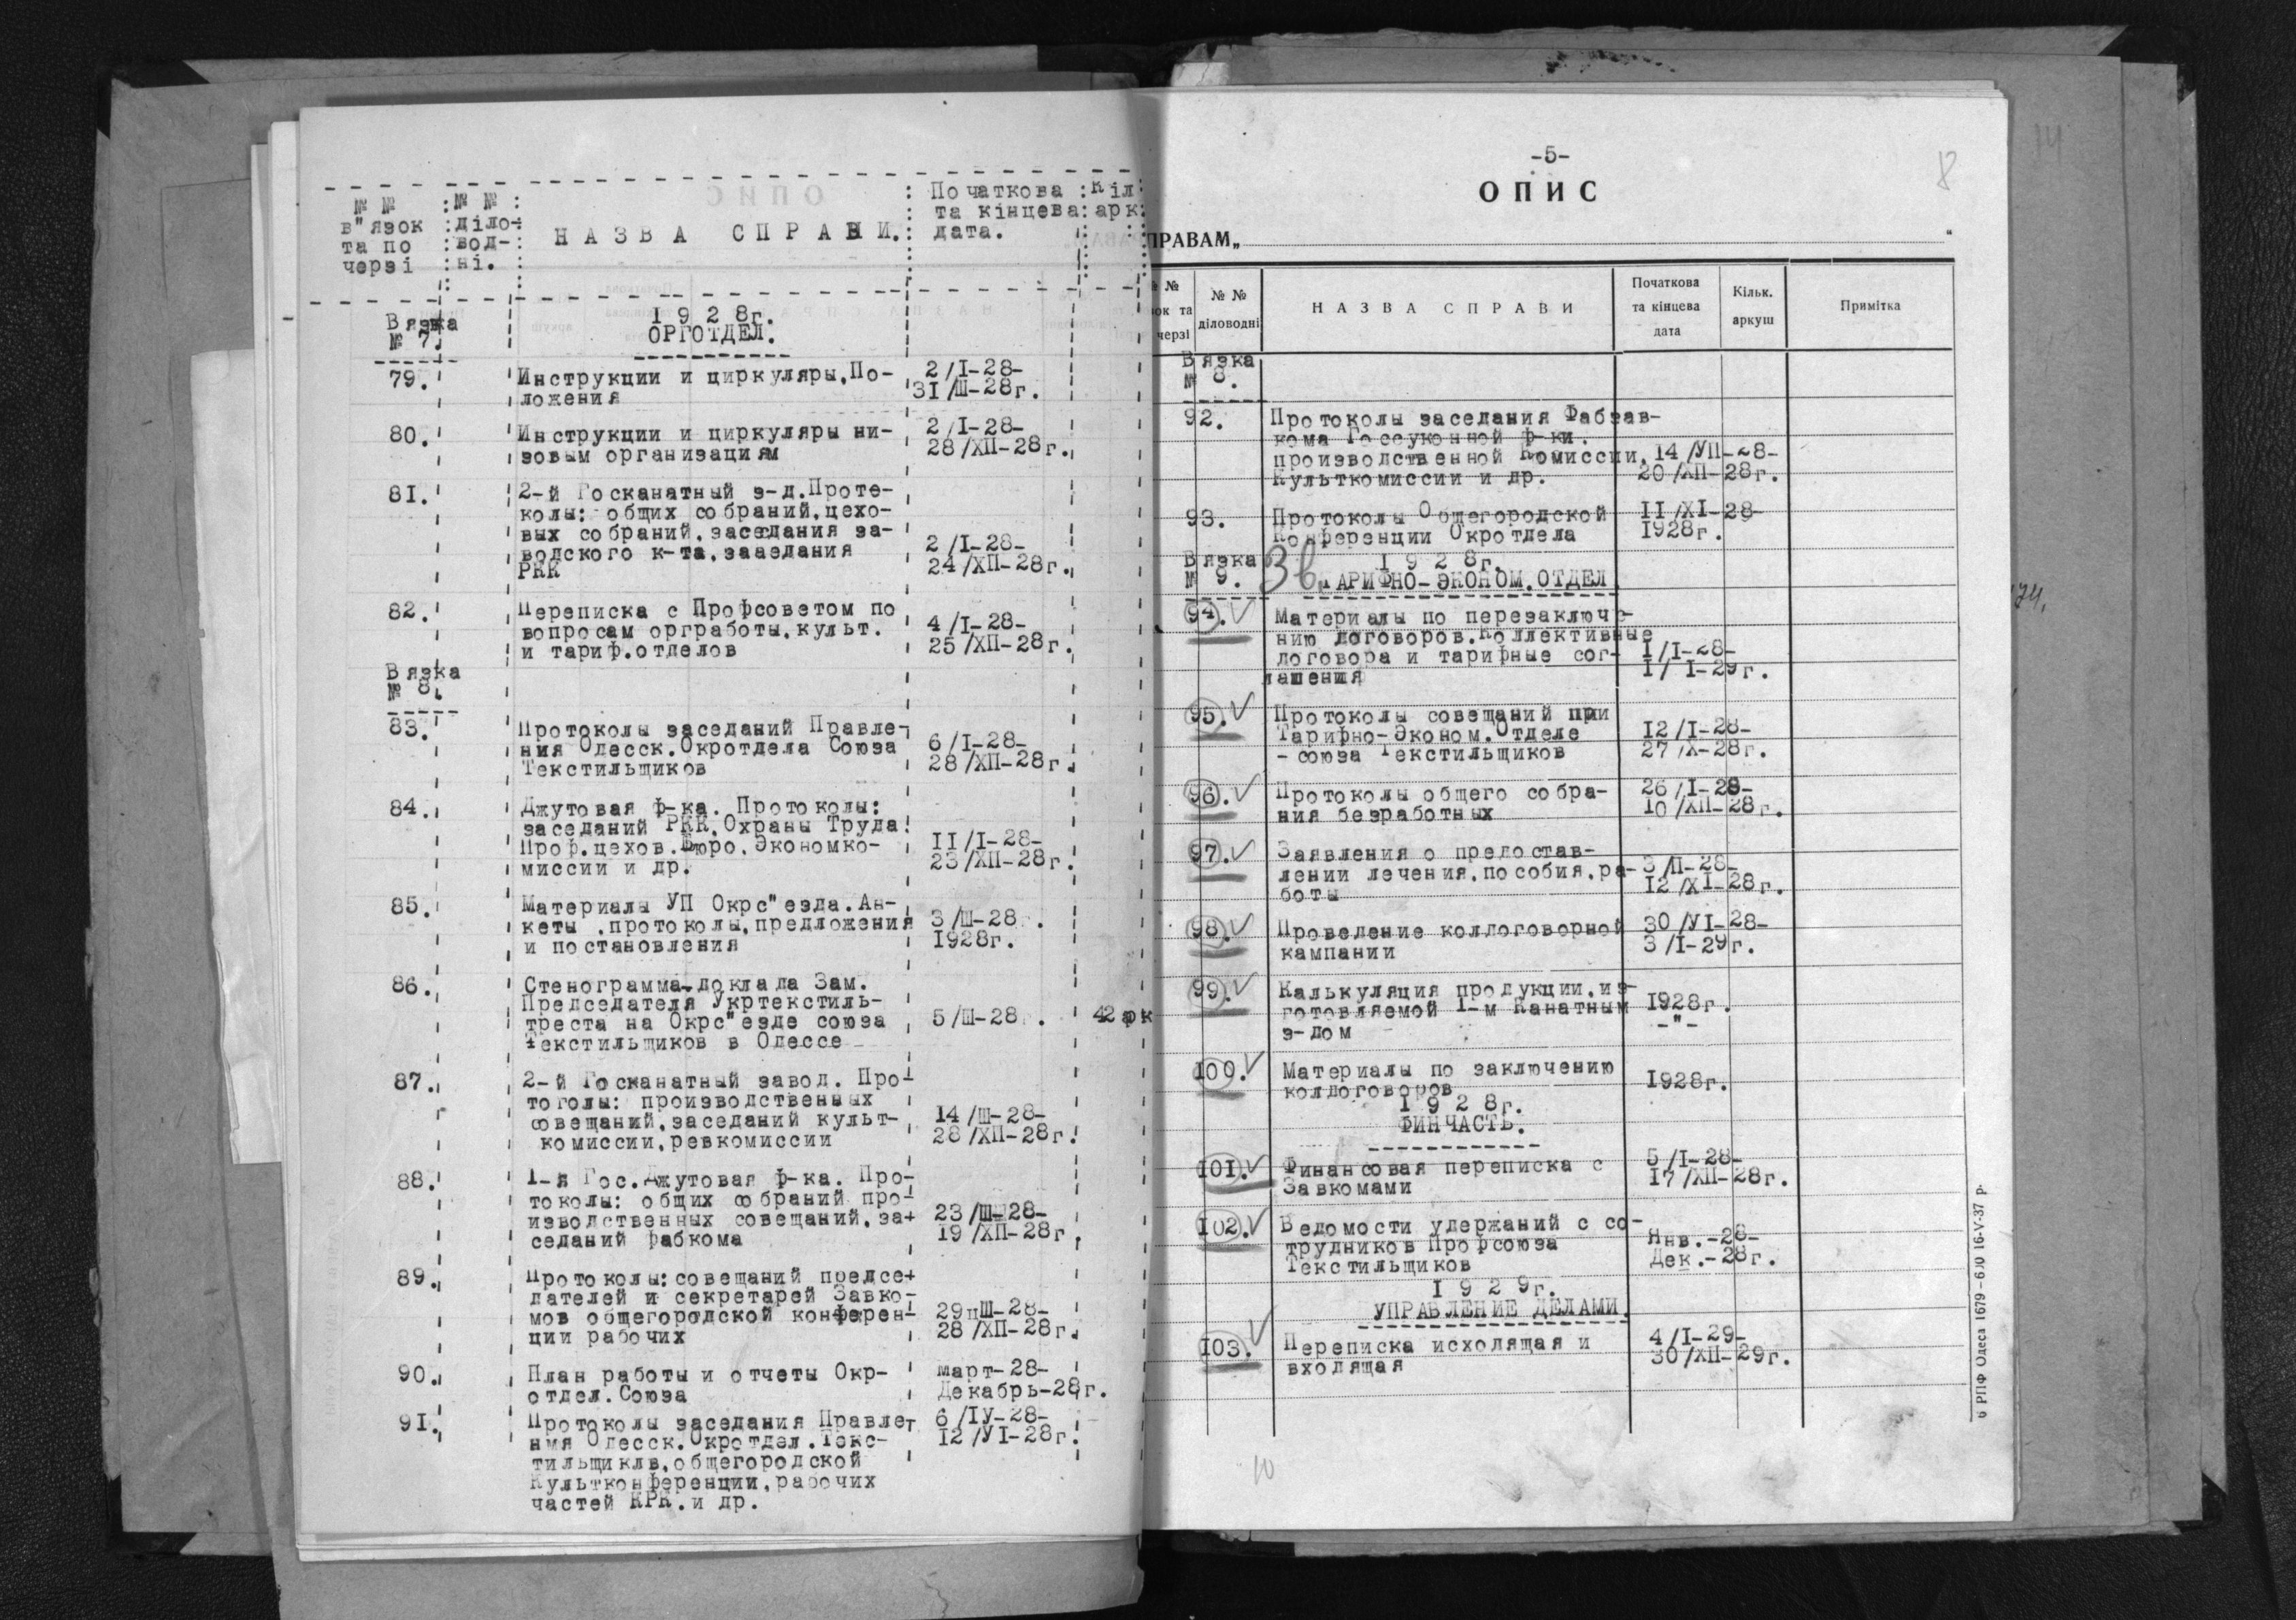 № №
в"язок
та по
черзі
№ №
діло-
вод-
ні.
НАЗВА СПРАВИ.
Початкова
та кінцева
дата.
Кіл
арк
Вязка
№ 7.
1928г.
ОРГОТДЕЛ.
79. Инструкции и циркуляры.По- 2/I-28-
ложения 31/Ш-28г.
80. Инструкции и циркуляры ни- 2/I-28-
зовым организациям 28/ХП-28г.
81. 2-й Госканатный з-д.Прото-
колы: общих собраний,цехо-
вых собраний,заседания за-
водского к-та,зааедания 2/I-28-
РКК 24/ХП-28г.
82. Переписка с Профсоветом по
вопросам оргработы,культ. 4/I-28-
и тариф.отделов 25/ХП-28г.
Вязка
№ 8.
83. Протоколы заседаний Правле-
ния Одесск.Окротдела Союза 6/I-28-
Текстильщиков 28/ХП-28г.
84. Джутовая ф-ка. Протоколы:
заседаний РКК,Охраны Труда
Проф.цехов.Бюро,Экономко- II/I-28-
миссии и др. 23/ХП-28г.
85. Материалы УП Окрс"езда.Ан-
кеты ,протоколы,предложения 3/Ш-28 .
и постановления 1928г.
86. Стенограмма доклада Зам.
Председателя Укртекстиль-
треста на Окрс"езде союза 5/Ш-28 . 42 арк
Текстильщиков в Одессе
87. 2-й Госканатный завод. Про-
тоголы: производственных
совещаний,заседаний культ- 14/Ш-28-
комиссии,ревкомиссии 28/ХП-28г.
88. 1-я Гос.Джутовая ф-ка. Про-
токолы: общих собраний про-
изводственных совещаний,за- 23/Ш-28-
седаний фабкома 19/ХП-28г.
89. Протоколы:совещаний предсе-
дателей и секретарей Завко-
мов общегородской конферен- 29пШ-28-
ции рабочих 28/ХП-28г.
90. План работы и отчеты Окр- март-28-
отдел.Союза Декабрь-28г.
91. Протоколы заседания Правле- 6/IУ-28-
ния Одесск.Окротдел.Текс- 12/УI-28г.
тильщиклв,общегородской
Культконференции,рабочих
частей КРК.и др.
-5-
8
14
ОПИС
ПРАВАМ„ “
№ №
ок та
черзі
№ №
діловодні
НАЗВА СПРАВИ
Початкова
та кінцева
дата
Кільк.
аркуш
Примітка
Вязка
№ 8.
92. Протоколы заседания Фабзав-
кома Госсуконной ф-ки.
производственной Комиссии, 14/УП-28-
Культкомиссии и др. 20/ХП-28г.
93. Протоколы Общегородской II/XI-28-
Конференции Окротдела 1928г.
Вязка
№ 9.
3в
1928г.
ТАРИФНО-ЭКОНОМ.ОТДЕЛ
94. Материалы по перезаключе-
нию договоров.Коллективные
договора и тарифные сог- I/I-28-
лашения I/I-29г.
95. Протоколы совещаний при
Тарифно-Эконом.Отделе 12/I-28-
-союза Текстильщиков 27/Х-28г.
96. Протоколы общего собра- 26/I-28-
ния безработных 10/ХП-28г.
97. Заявления о предостав-
лении лечения,пособия,ра- 3/П-28-
боты 12/XI-28г.
98. Проведение колдоговорной 30/УI-28-
кампании 3/I-29г.
99. Калькуляция продукции,из-
готовляемой 1-м Канатным 1928г.
з-дом -"-
100. Материалы по заключению
колдоговоров 1928г.
1928г.
ФИНЧАСТЬ.
101. Финансовая переписка с 5/I-28-
Завкомами 17/ХП-28г.
102. Ведомости удержаний с со-
трудников Профсоюза Янв.-28-
Текстильщиков Дек.-28г.
1929г.
УПРАВЛЕНИЕ ДЕЛАМИ.
103. Переписка исходящая и 4/I-29-
входящая 30/ХП-29г.
10
РПФ Одеса 1679-600 16-V-37 р.